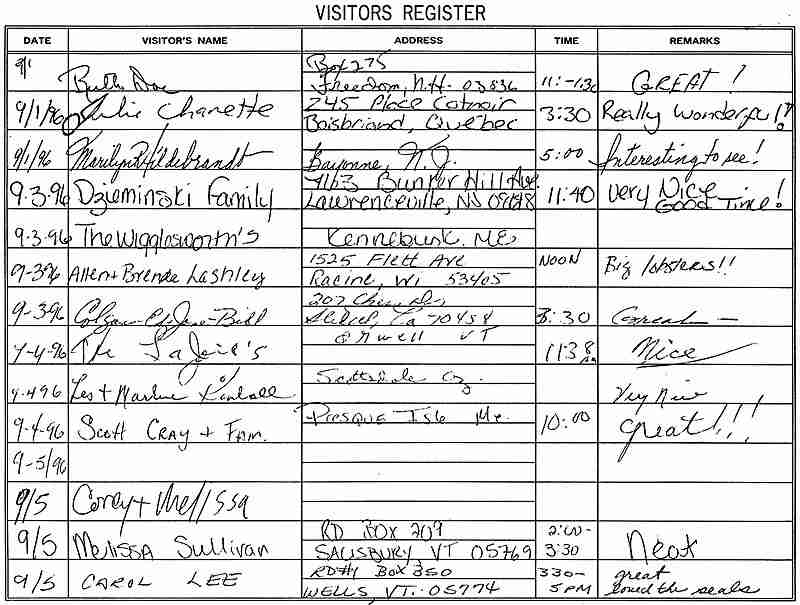 VISITORS REGISTER
DATE VISITOR'S NAME ADDRESS TIME REMARKS
9/1 Ruth Box 275
Freedom, N.H. 03836 11:-1:30 GREAT!
9/1/96 Julie Charette 245 Place
Boisbriand, Quebec 3:30 Really Wonderful!!
9/1/96 Marilyn Hildebrandt Bayonne, N.J. 5:00 Interesting to see!
9.3.96 Dzieminski Family 4163 Bunker Hill Ave.
Lawrenceville, NJ 11:40 very Nice
GOOD Time!
9.3.96 The Wigglesworth's Kennebunk. ME
9-3-96 Allen + Brenda Lashley 1525 Flett Ave
Racine, Wi 53405 NOON Big lobsters!!
9-3-96 207
Slidell, La 70458 3:30 Great —
9-4-96 The VT 11:38 Nice
9-4-96 Les + Marlene Kimball Scottsdale Az. Very Nice
9-4-96 Scott CRAY + Fam. Presque Isle Me. 10:00 great!!!
9-5/96
9/5 Corey + Melissa
9/5 Melissa Sullivan RD BOX 209
SALISBURY VT 05769 2:00-
3:30 Neat
9/5 CAROL LEE RD#1 Box 350
WELLS, VT. 05774 3:30-
5 PM great
loved the seals